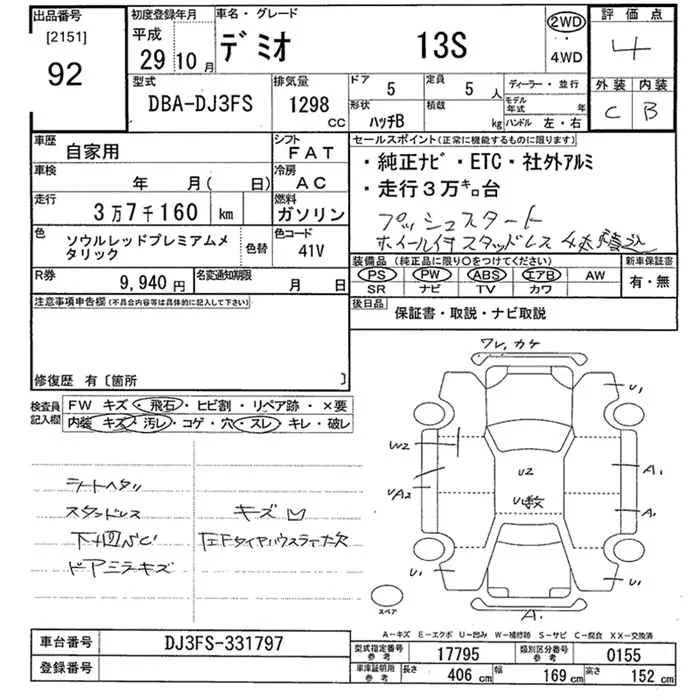 出品番号
[2151]
92
初度登録年月
平成
29年10月
車名・グレード
デミオ 13S
2WD
・
4WD
評価点
4
外装 内装
C B
型式
DBA-DJ3FS
排気量
1298 CC
ドア
5
定員
5 人
形状
ハッチB
積載
kg
ディーラー・並行
モデル年式 年
ハンドル 左・右
車歴
自家用
シフト
FAT
車検
年 月( 日)
冷房
AC
走行
3万7千160 km
燃料
ガソリン
色
ソウルレッドプレミアムメ
タリック
色替
色コード
41V
R券
9,940円
名変通知期限
月 日
セールスポイント(正常に機能するものに限ります)
・純正ナビ・ETC・社外アルミ
・走行3万キロ台
プッシュスタート
ホイール付スタッドレス 4本積込
装備品(純正品に限り○をつけてください)
PS PW ABS エアB AW
SR ナビ TV カワ
新車保証書
有・無
後日品
保証書・取説・ナビ取説
注意事項申告欄(不具合内容等は具体的に記入して下さい)
修復歴 有〔箇所 〕
検査員
記入欄
FW キズ・飛石・ヒビ割・リペア跡・×要
内装 キズ・汚レ・コゲ・穴・スレ・キレ・破レ
シートヘタリ
スタッドレス
下廻サビC
ドアミラーキズ
キズ凹
左Fタイヤハウスライナー欠
ワレ、カケ
U1
W2
UA2
U2
U数
A1
A1
U1
U1
A1
スペア
A-キズ E-エクボ U-凹み W-補修跡 S-サビ C-腐食 XX-交換済
車台番号
DJ3FS-331797
登録番号
型式指定番号
参考
17795
類別区分番号
参考
0155
車庫証明用
参考
長さ
406 cm
幅
169 cm
高さ
152 cm